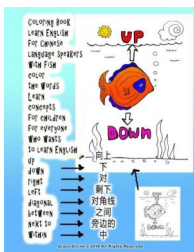 Coloring Book
Learn English
For Chinese
Language Speakers
With Fish
color
the Words
Learn
concepts
For children
For everyone
Who Wants
to Learn English
up 向上
down 下
right 对
Left 剩下
diagonal 对角线
between 之间
next to 旁边的
Within 中
UP
DOWN
Grace Divine © 2016 All Rights Reserved